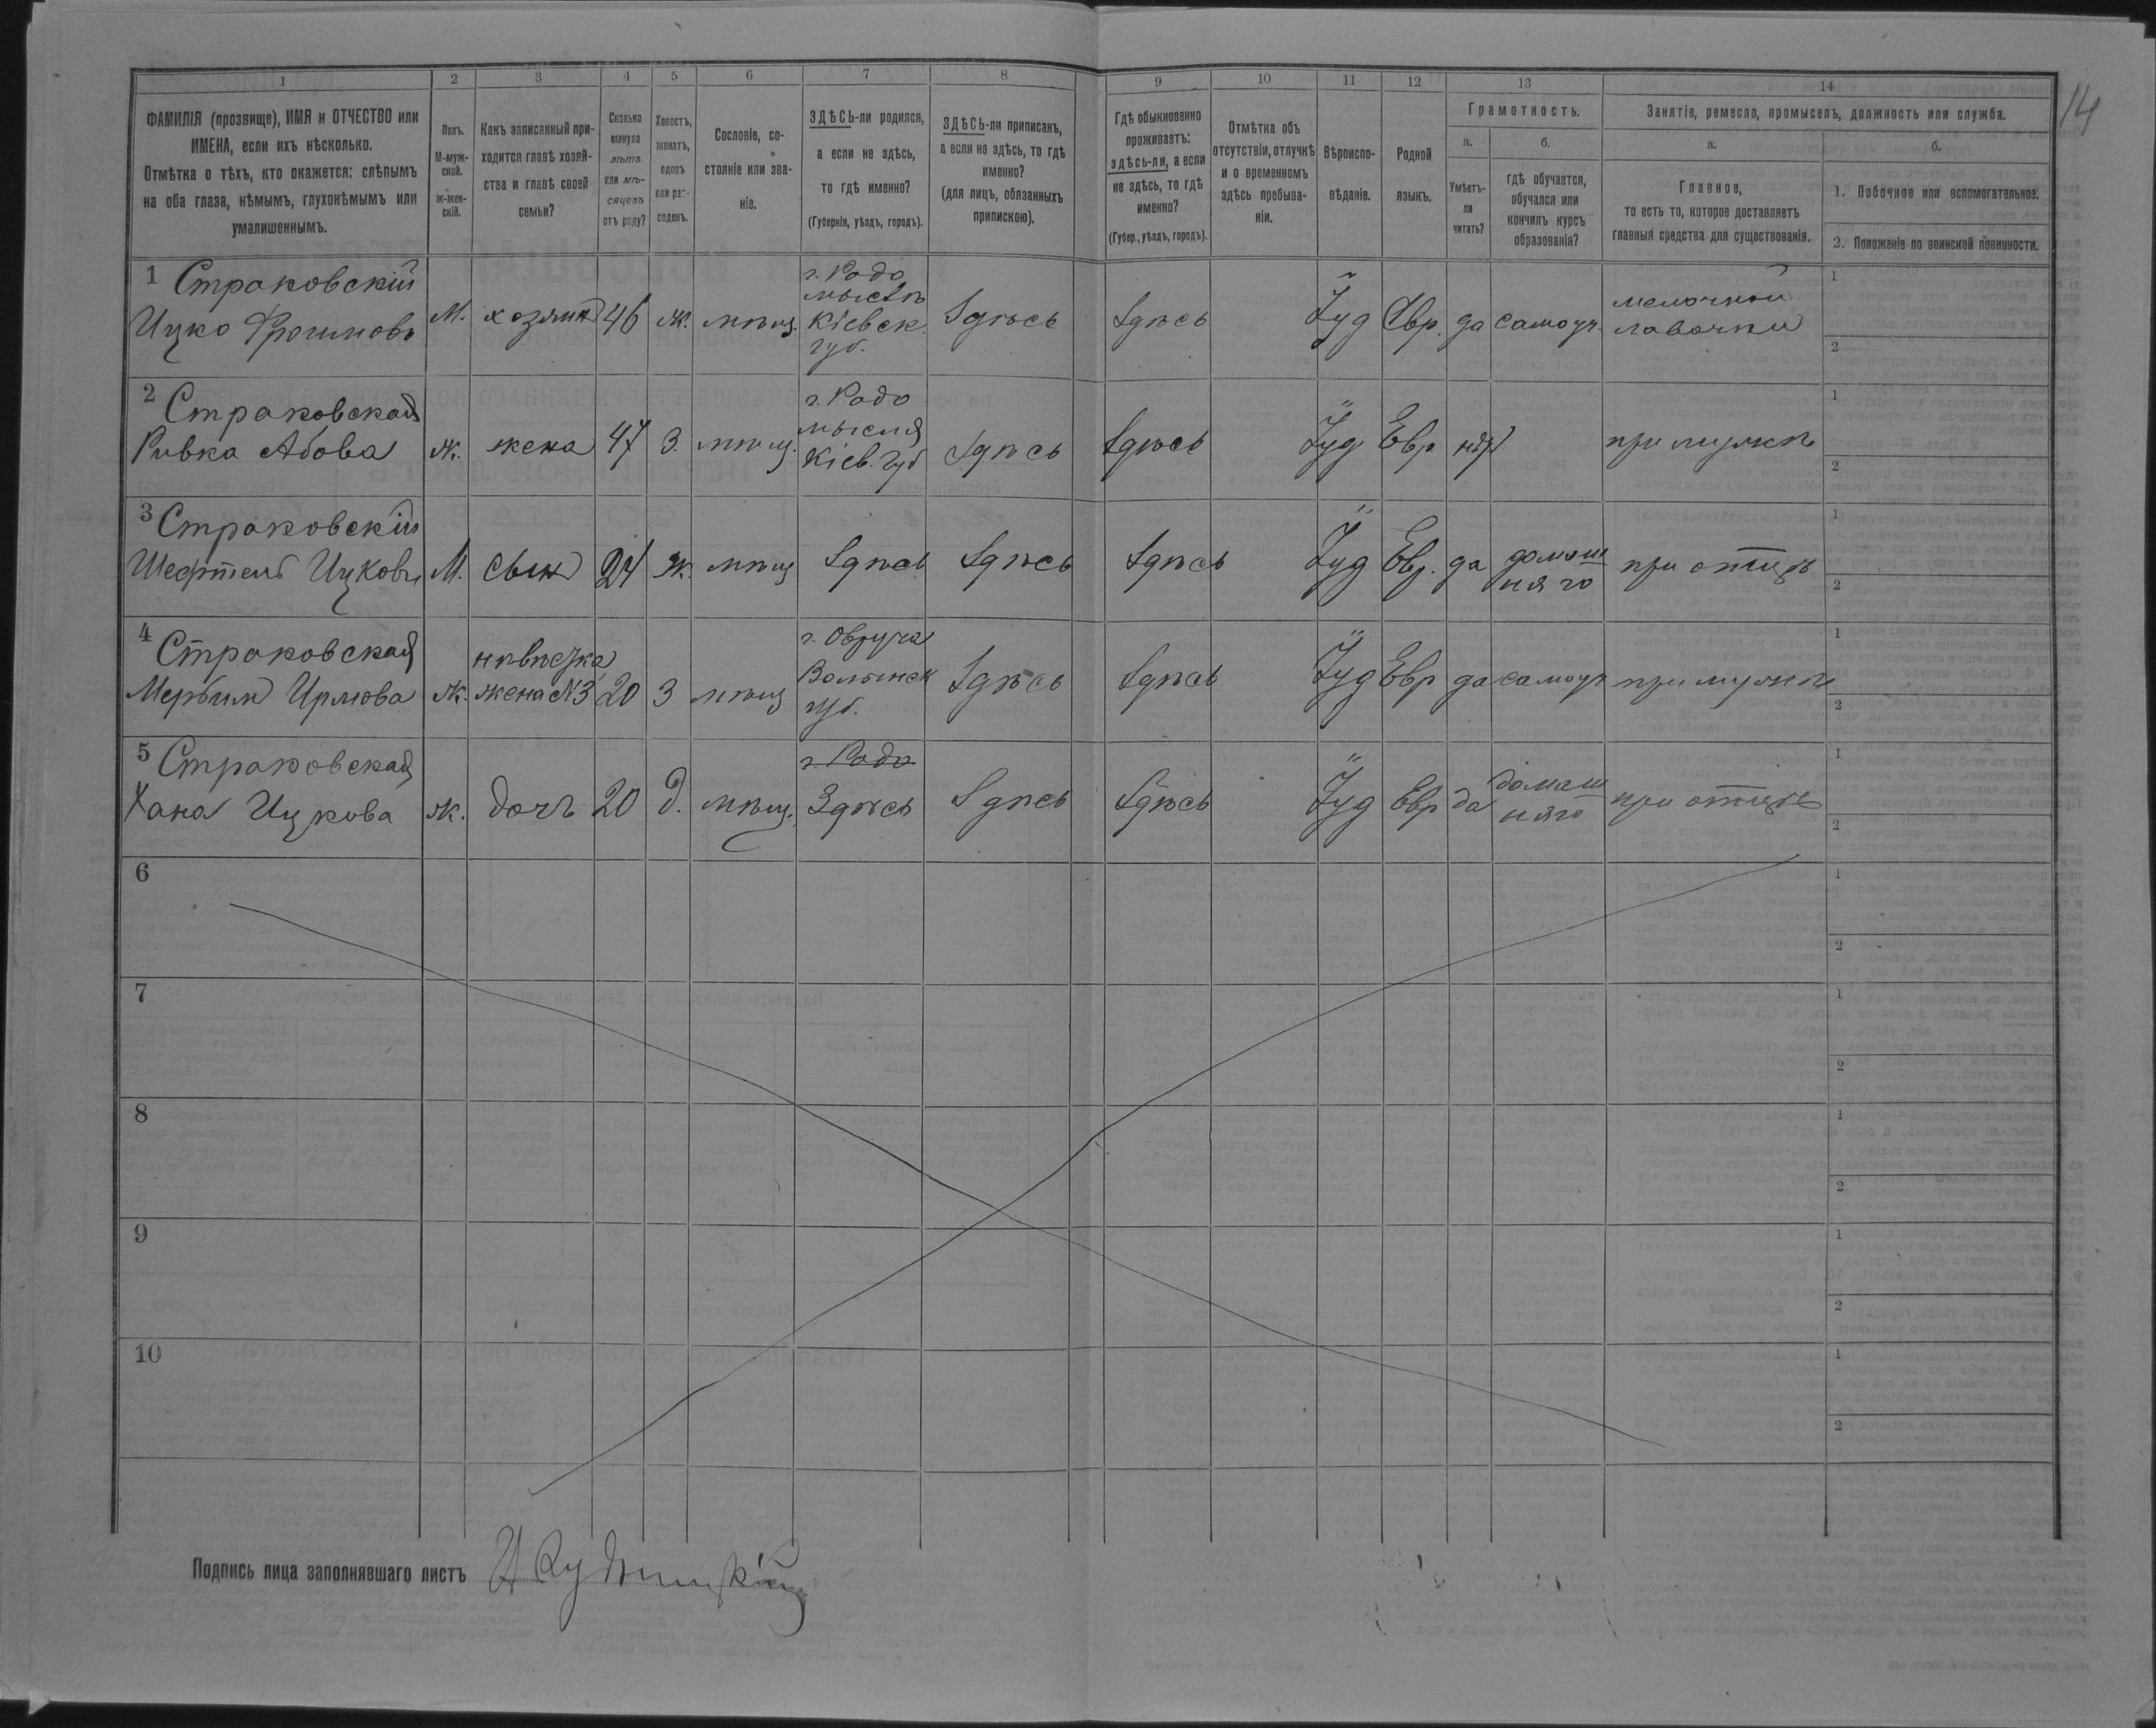 14
1 2 3 4 5 6 7 8 9 10 11 12 13 14
ФАМИЛІЯ (прозвище), ИМЯ и ОТЧЕСТВО или
ИМЕНА, если ихъ нѣсколько.
Отмѣтка о тѣхъ, кто окажется: слѣпымъ
на оба глаза, нѣмымъ, глухонѣмымъ или
умалишеннымъ.
Полъ.
М-муж-
ской.
Ж-жен-
скій.
Какъ записанный при-
ходится главѣ хозяй-
ства и главѣ своей
семьи?
Сколько
минуло
лѣтъ
или мѣ-
сяцевъ
отъ роду?
Холостъ,
женатъ,
вдовъ
или раз-
веденъ.
Сословіе, со-
стояніе или зва-
ніе.
ЗДѢСЬ-ли родился,
а если не здѣсь,
то гдѣ именно?
(Губернія, уѣздъ, городъ).
ЗДѢСЬ-ли приписанъ,
а если не здѣсь, то гдѣ
именно?
(для лицъ, обязанныхъ
припискою).
Гдѣ обыкновенно
проживаетъ:
здѣсь-ли, а если
не здѣсь, то гдѣ
именно?
(Губер., уѣздъ, городъ).
Отмѣтка объ
отсутствіи, отлучкѣ
и о временномъ
здѣсь пребыва-
ніи.
Вѣроиспо-
вѣданіе.
Родной
языкъ.
Грамотность.
а.
Умѣетъ-
ли
читать?
б.
гдѣ обучается,
обучался или
кончилъ курсъ
образованія?
Занятіе, ремесло, промыселъ, должность или служба.
а.
Главное,
то есть то, которое доставляетъ
главныя средства для существованія.
б.
1. Побочное или вспомогательное.
2. Положеніе по воинской повинности.
1 Страковскій
Ицко Фроимовъ
М. хозяинъ 46 ж. мѣщ.
г. Радо
мыслѣ
Кіевск.
губ.
Здѣсь Здѣсь Іуд Евр. да самоуч.
мелочной
лавочки
1
2
2 Страковская
Ривка Абова
ж. жена 47 З. мѣщ.
г. Радо
мысля
Кіев. губ
Здѣсь Здѣсь Іуд Евр нѣт при мужѣ
1
2
3 Страковскій
Шефтель Ицковъ
М. сынъ 24 ж. мѣщ Здѣсь Здѣсь Здѣсь Іуд Евр. да
домаш
няго
при отцѣ
1
2
4 Страковская
Мерьим Ирмова
ж.
нѣвѣстка
жена №3
20 З мѣщ
г. Овруча
Волынск
губ.
Здѣсь Здѣсь Іуд Евр да самоуч при мужѣ
1
2
5 Страковская
Хана Ицкова
ж. дочъ 20 д. мѣщ.
г. Радо
Здѣсь
Здѣсь Здѣсь Іуд Евр да
домаш
няго
при отцѣ
1
2
6
1
2
7
1
2
8
1
2
9
1
2
10
1
2
Подпись лица заполнявшаго листъ